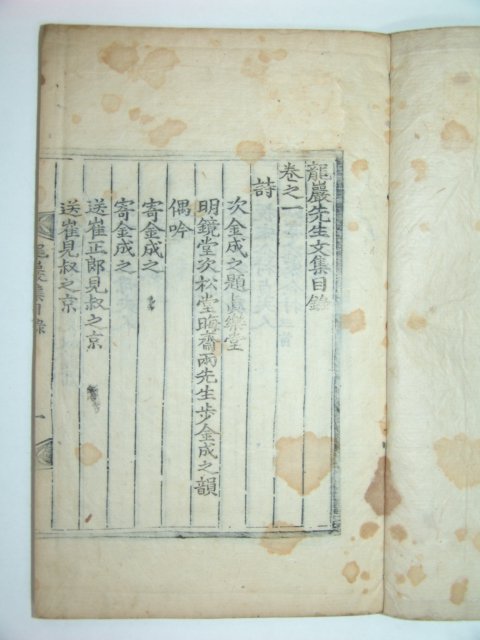 龍巖先生文集目錄
卷之一
詩
次金成之題眞樂堂
明鏡堂次松堂晦齋兩先生步金成之韻
偶吟
寄金成之
寄金成之
送崔正郎見叔之京
送崔見叔之京
龍巖集目錄 一